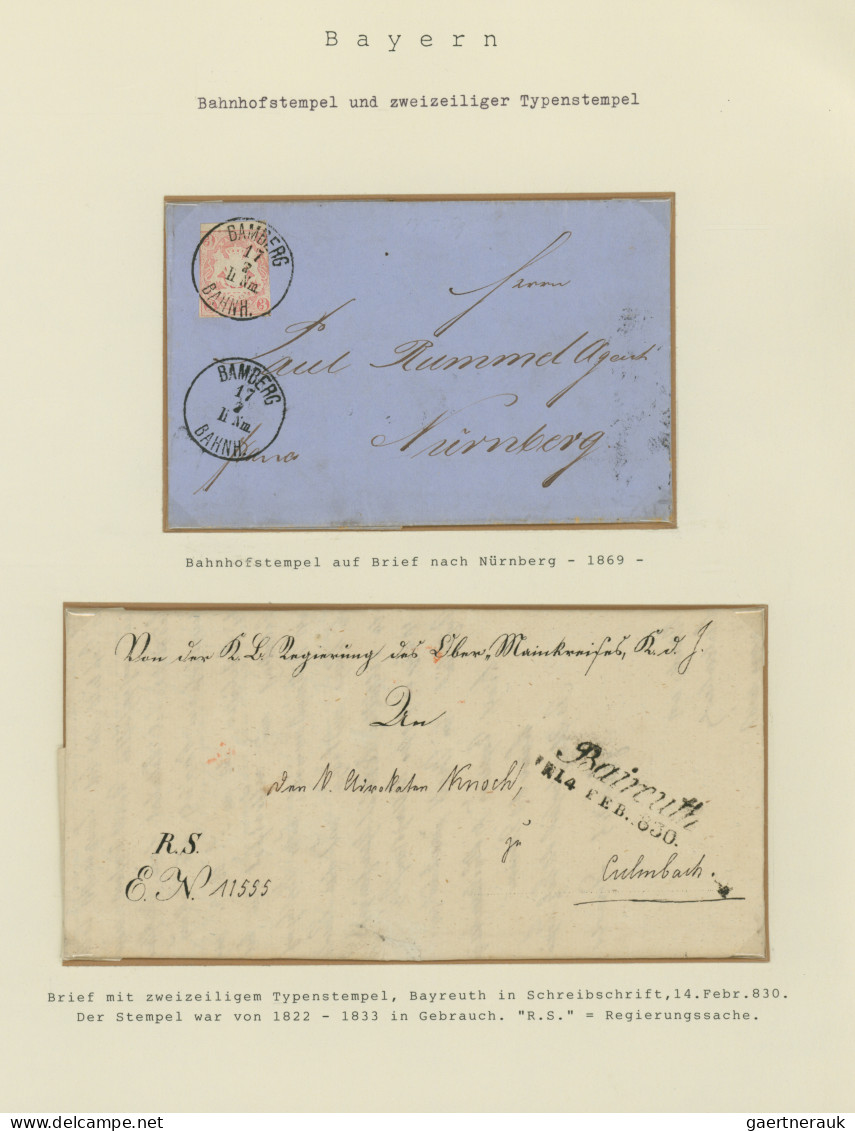 Bayern
Bahnhofstempel und zweizeiliger Typenstempel
BAMBERG
17
11 Nm.
BAHNH.
Herrn
Paul Rummel Agent
BAMBERG
17
11 Nm.
BAHNH.
Nürnberg
franco
Bahnhofstempel auf Brief nach Nürnberg - 1869 -
Von der K. B. Regierung des Ober-Mainkreises, K. d. J.
An
den K. Advokaten Knoch,
Baireuth
14 FEB. 830.
zu
R.S.
Culmbach.
E. N. 11555
Brief mit zweizeiligem Typenstempel, Bayreuth in Schreibschrift,14.Febr.830.
Der Stempel war von 1822 - 1833 in Gebrauch. "R.S." = Regierungssache.
PHILASEARCH.COM
gaertnerauk